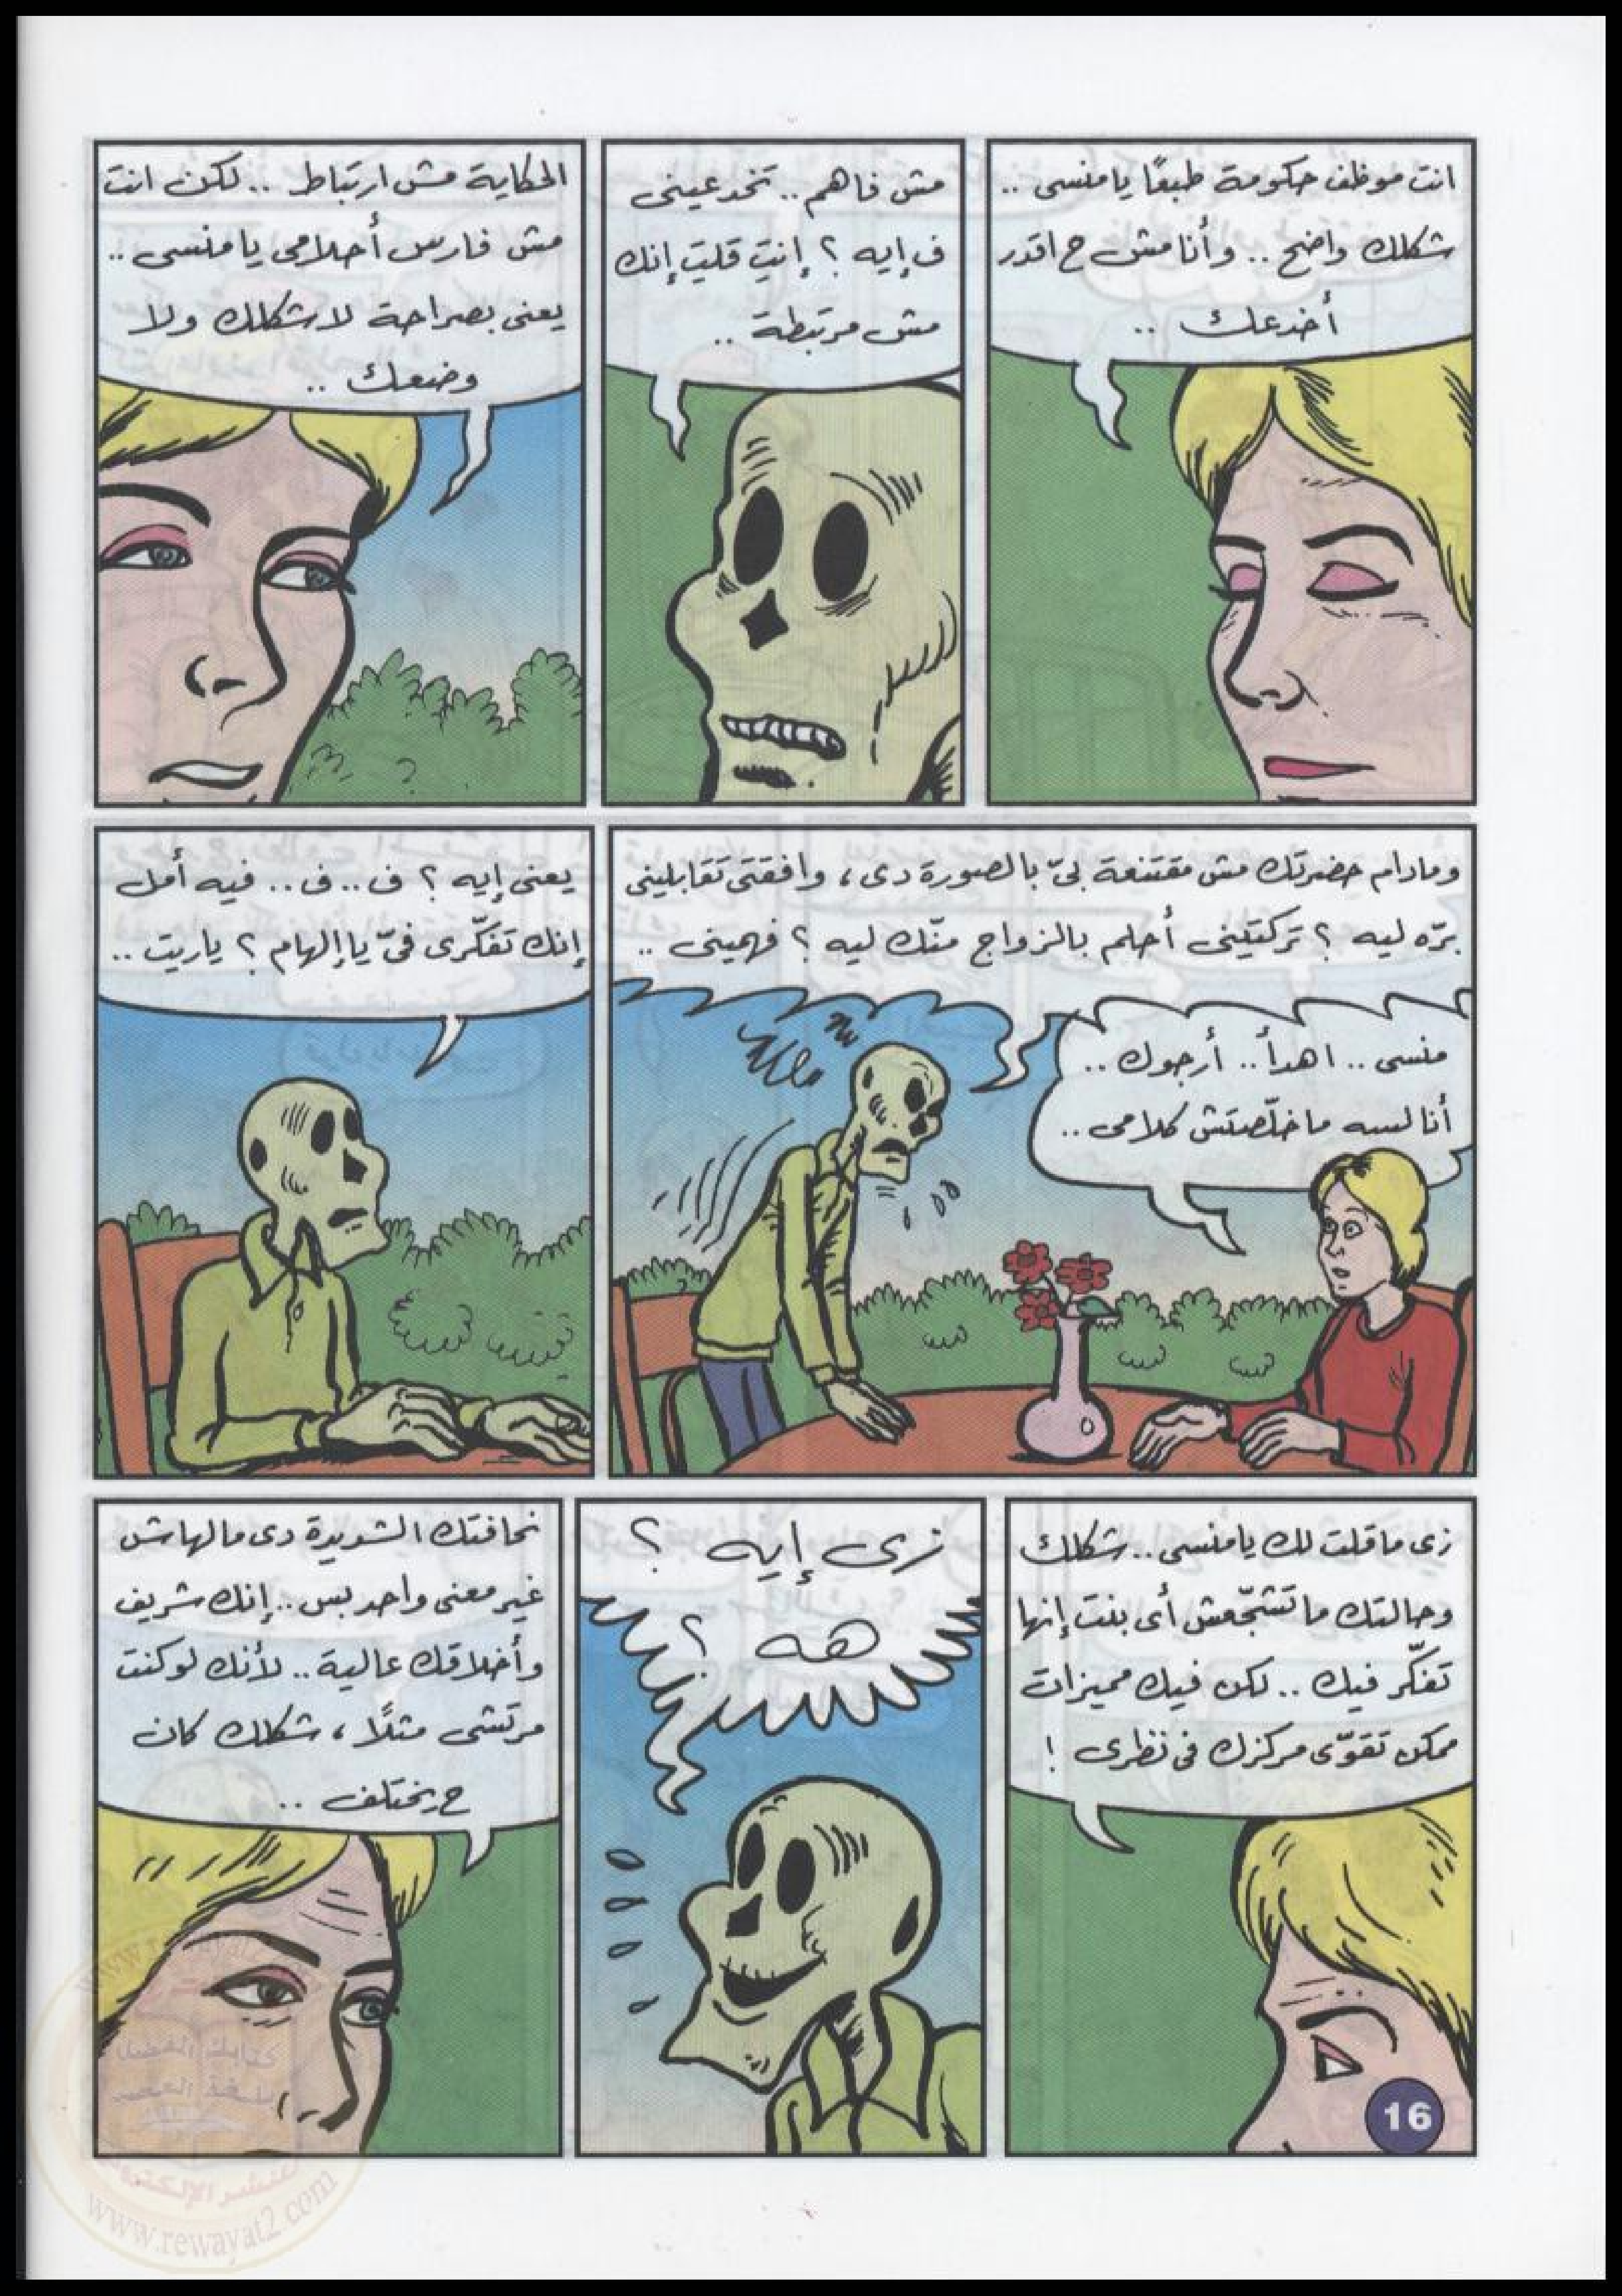 انت موظف حكومة طبعًا يا منسى ..
شكلك واضح .. وأنا مش ح اقدر
أخدعك ..
مش فاهم .. تخدعينى
ف إيه ؟ إنتِ قلتِ إنك
مش مرتبطة ..
الحكاية مش ارتباط .. لكن انت
مش فارس أحلامى يا منسى ..
يعنى بصراحة لا شكلك ولا
وضعك ..
ومادام حضرتك مش مقتنعة بىّ بالصورة دى ، وافقتى تقابلينى
برّه ليه ؟ تركتينى أحلم بالزواج منّك ليه ؟ فهمينى ..
منسى .. اهدأ .. أرجوك ..
أنا لسه ما خلّصتش كلامى ..
يعنى إيه ؟ ف .. ف .. فيه أمل
إنك تفكّرى فىّ يا إلهام ؟ ياريت ..
زى ما قلت لك يا منسى .. شكلك
وحالتك ما تشجّعش أى بنت إنها
تفكّر فيك .. لكن فيك مميزات
ممكن تقوّى مركزك فى نظرى !
زى إيه ؟
هه ؟
نحافتك الشديدة دى مالهاش
غير معنى واحد بس .. إنك شريف
وأخلاقك عالية .. لأنك لو كنت
مرتشى مثلًا ، شكلك كان
ح يختلف ..
16
www.rewayat2.com